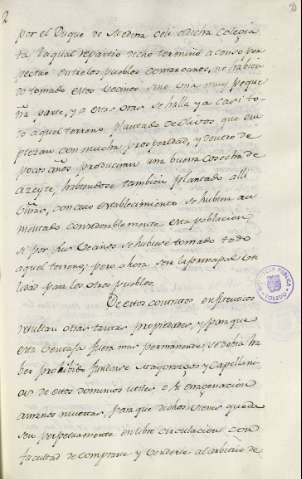 por el Duque de Medina celi a dicha colegia
ta la qual repartio dicho termino a censo per
petuo entre los pueblos comarcanos, no habien
do tomado estos vecinos sino una muy peque
ña parte, y a estas oras se halla ya casi to
do aquel terreno plantado de olivos que em
piezan con mucha prosperidad, y dentro de
pocos años produciran una buena cosecha de
azeyte, habiendose tambien plantado alli
viñas, con cuio establecimiento se hubiera au
mentado considerablemente esta poblacion
si por sus vecinos se hubiese tomado todo
aquel terreno; pero ahora sera la principal uti
lidad para los otros pueblos.
De estos contratos enfiteuticos
resultan otras tantas propiedades, y para que
esta ventaja fuera mas permanente, se debia ha
ber prohibido fundarse Mayorazgos y Capellani
as de estos dominios utiles o la enagenacion
a manos muertas, para que dichos vienes queda
sen perpetuamente en libre circulacion con
facultad de comprarse y venderse al arbitrio de